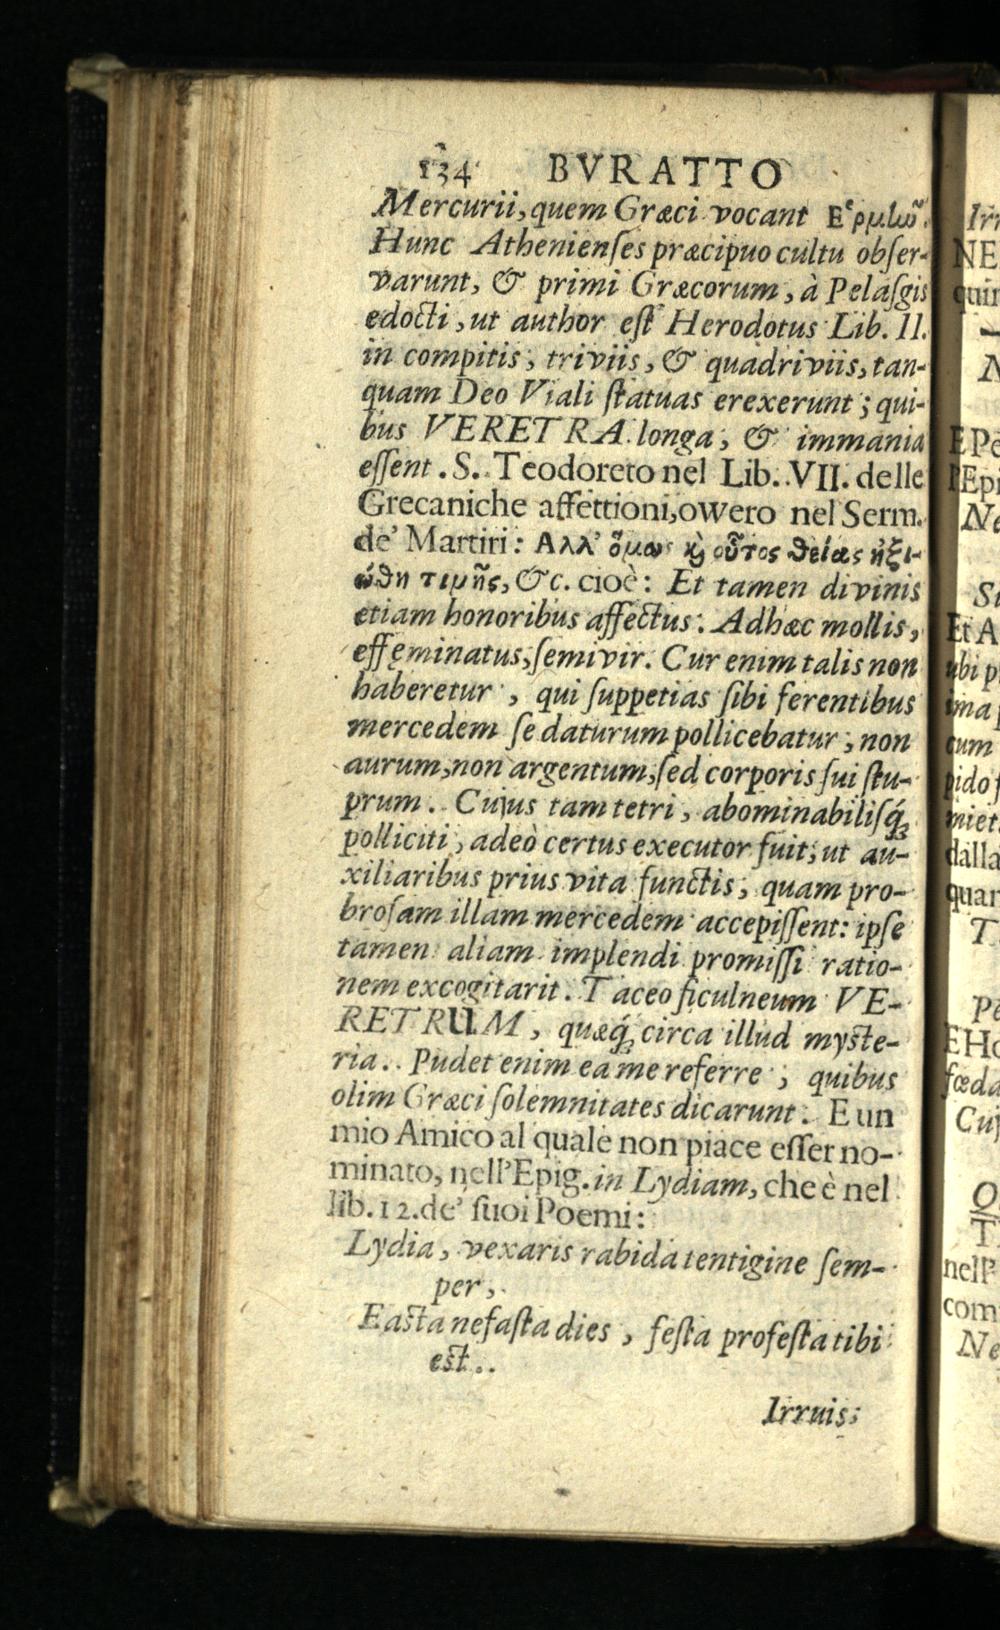 134 BVRATTO
Mercurii, quem Græci vocant Ἑρμῶν.
Hunc Athenienſes præcipuo cultu obſer-
varunt, & primi Græcorum, à Pelaſgis
edocti, ut author eſt Herodotus Lib. II.
in compitis, triviis, & quadriviis, tan-
quam Deo Viali ſtatuas erexerunt; qui-
bus VERETRA longa, & immania
eſſent. S. Teodoreto nel Lib. VII. delle
Grecaniche affettioni, owero nel Serm.
de' Martiri: Αλλ' ὅμως ϗ οὗτος θείας ἠξι-
ώθη τιμῆς, &c. cioè: Et tamen divinis
etiam honoribus affectus. Adhæc mollis,
effęminatus, ſemivir. Cur enim talis non
haberetur, qui ſuppetias ſibi ferentibus
mercedem ſe daturum pollicebatur; non
aurum, non argentum, ſed corporis ſui ſtu-
prum. Cujus tam tetri, abominabiliſq́;
polliciti, adeò certus executor fuit, ut au-
xiliaribus prius vita functis, quam pro-
broſam illam mercedem accepiſſent: ipſe
tamen aliam implendi promiſſi ratio-
nem excogitarit. Taceo ficulneum VE-
RETRUM, quæq́; circa illud myſte-
ria.. Pudet enim ea me referre; quibus
olim Græci ſolemnitates dicarunt. E un
mio Amico al quale non piace eſſer no-
minato, nell'Epig. in Lydiam, che è nel
lib. 12. de' ſuoi Poemi:
Lydia, vexaris rabida tentigine ſem-
per,
Eaſta nefaſta dies, feſta profeſta tibi
eſt..
Irruis;